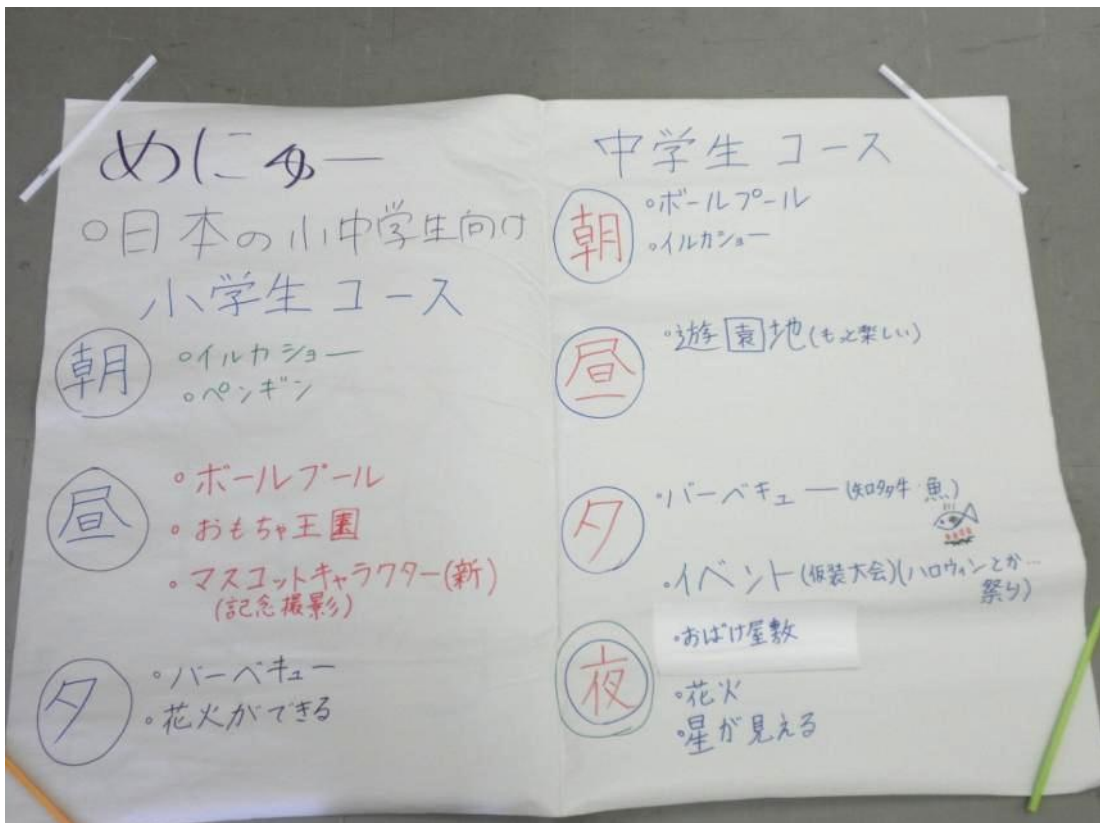 めにゅー
○日本の小中学生向け
小学生コース
朝
○イルカショー
○ペンギン
昼
○ボールプール
○おもちゃ王国
○マスコットキャラクター(新)
(記念撮影)
夕
○バーベキュー
○花火ができる
中学生コース
朝
○ボールプール
○イルカショー
昼
○遊園地(もっと楽しい)
夕
○バーベキュー(知多牛・魚)
○イベント(仮装大会)(ハロウィンとか…
祭り)
夜
○おばけ屋敷
○花火
○星が見える